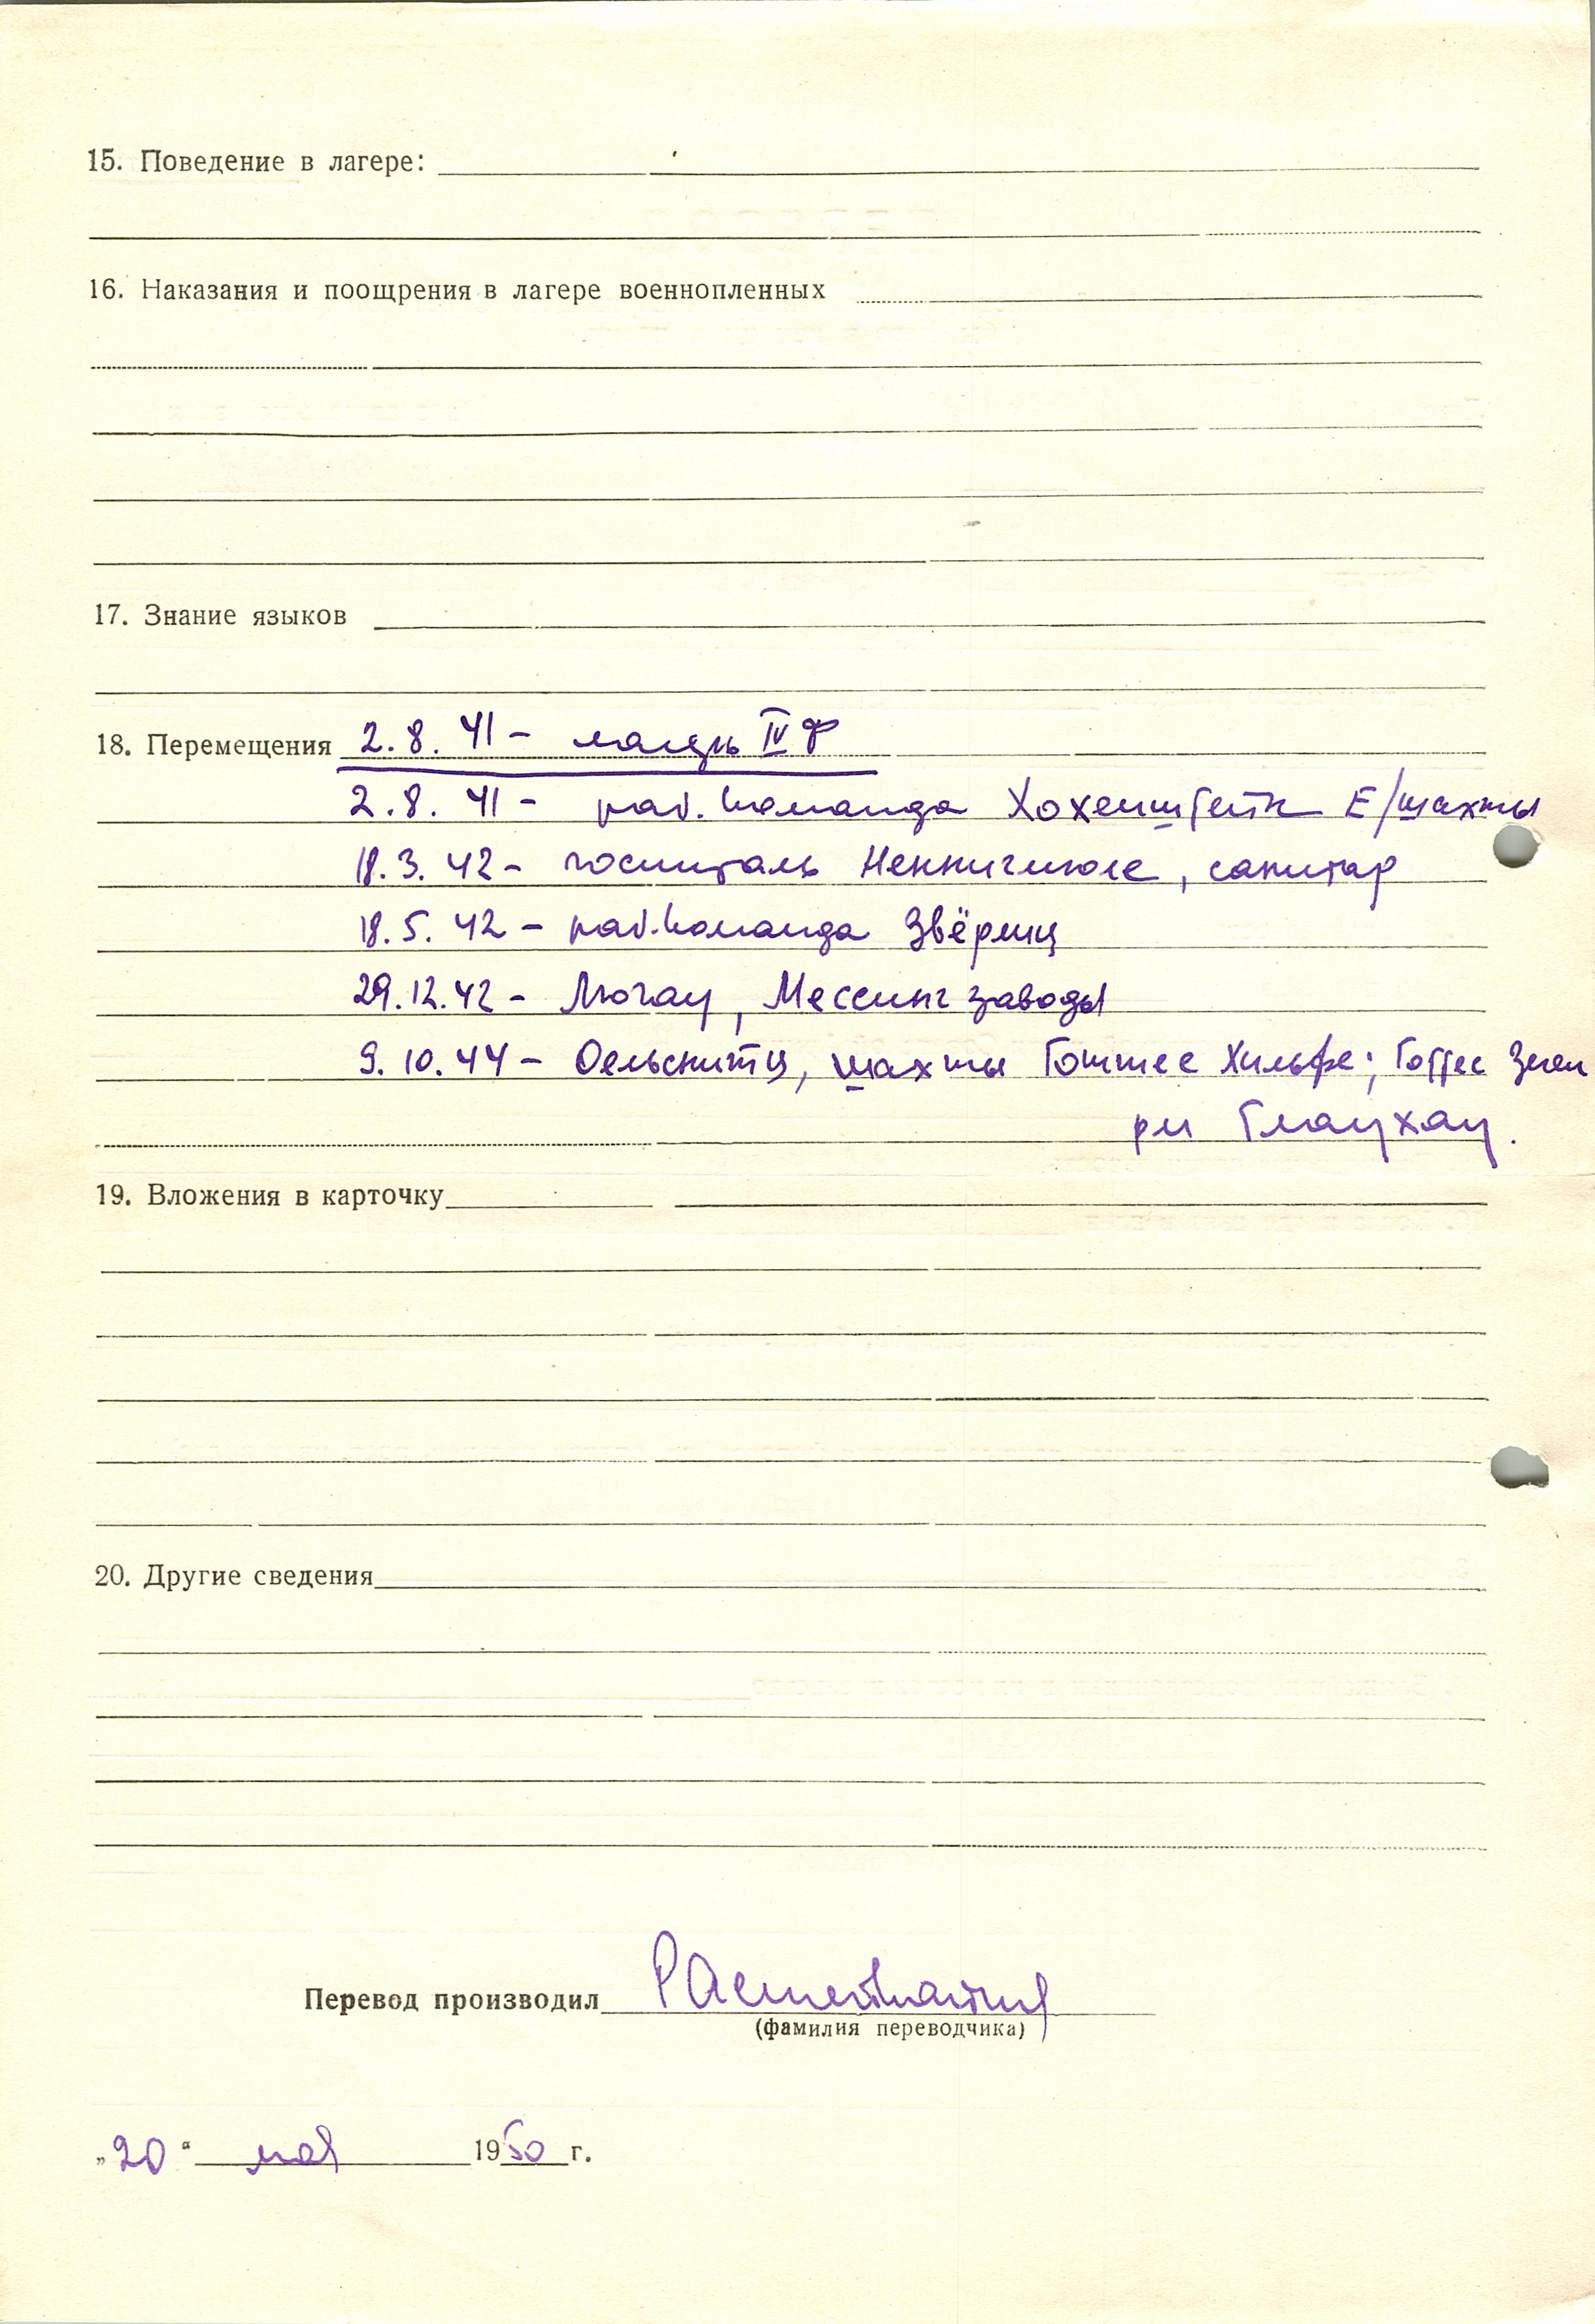 15. Поведение в лагере:
16. Наказания и поощрения в лагере военнопленных
17. Знание языков
18. Перемещения 2.8.41 - лагерь IV Ф
2.8.41 - раб. команда Хохенштейн Е/шахты
18.3.42 - госпиталь санитар
18.5.42 - раб. команда Звёрниц
29.12.42 - Люгау, Мессинг заводы
9.10.44 - Оельснитц, шахты Готтес Хильфе; Готтес Зеген
при Глаухау.
19. Вложения в карточку
20. Другие сведения
Перевод производил
(фамилия переводчика)
„20“ мая 1950 г.